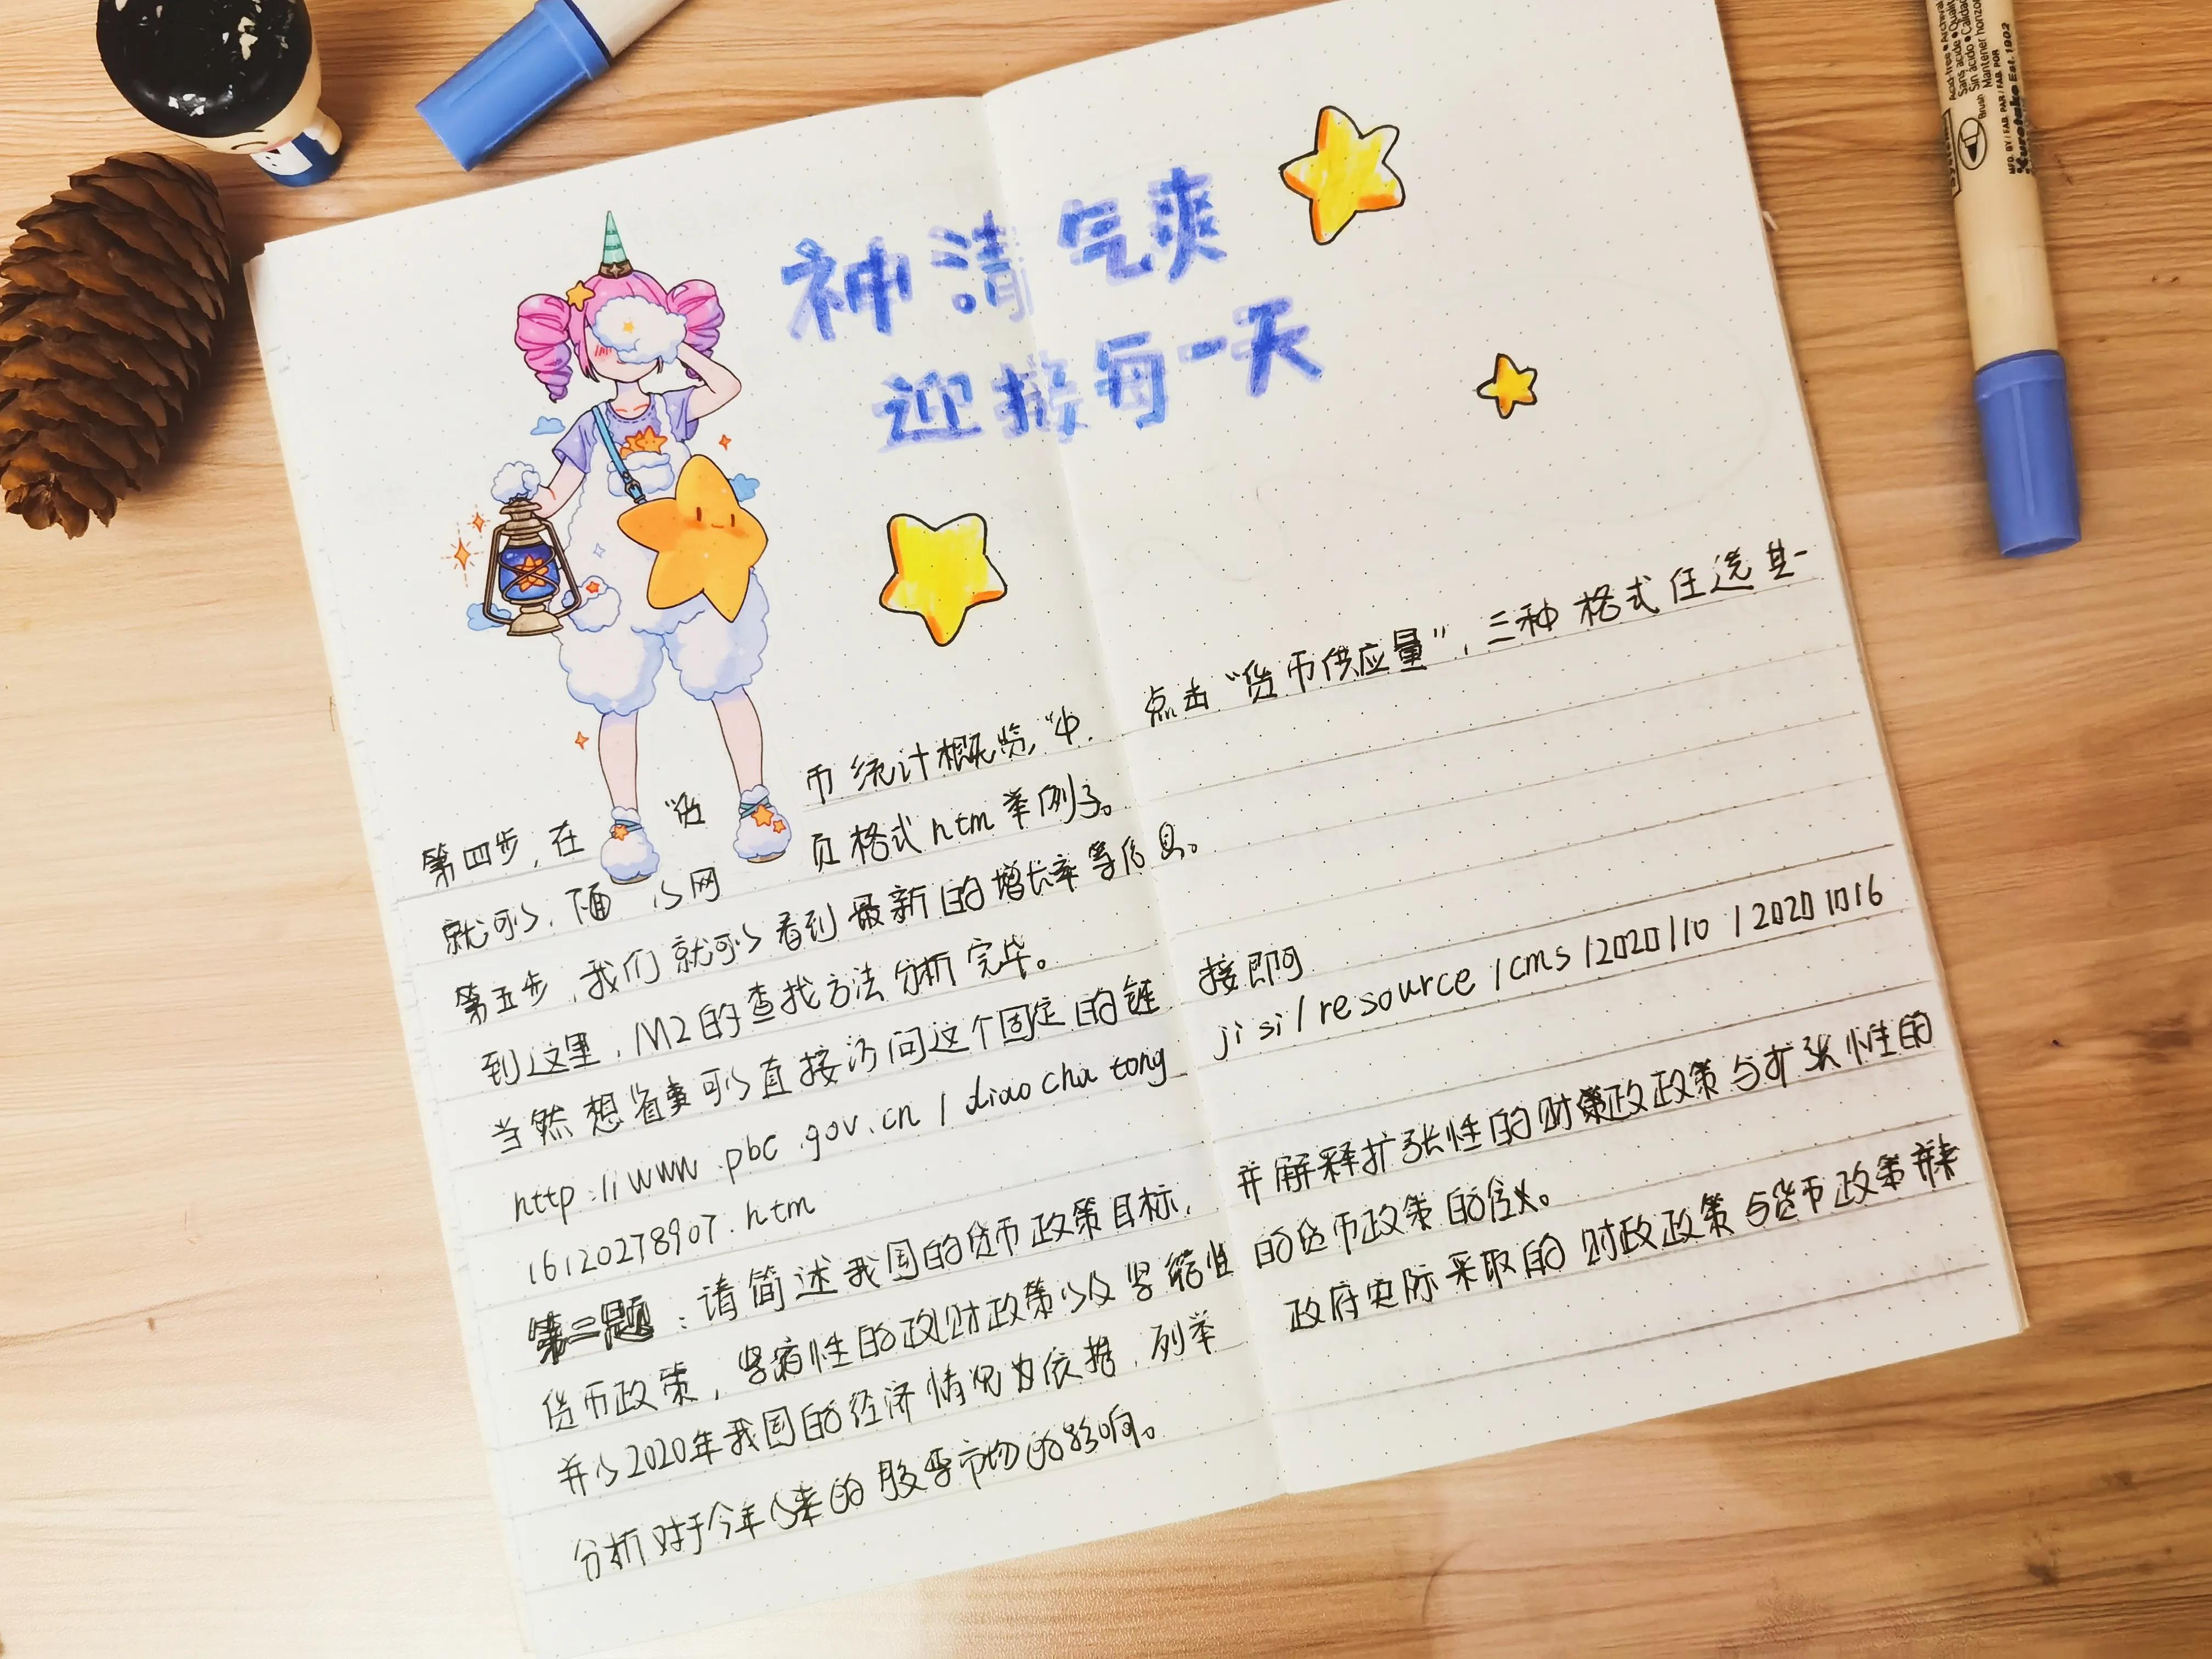 神清气爽
迎接每一天
第四步，在“货币统计概览”中，点击“货币供应量”，三种格式任选其一
就可以，下面以网页格式htm举例子。
第五步，我们就可以看到最新的增长率等信息。
到这里，M2的查找方法分析完毕。
当然想省事可以直接访问这个固定的链接即可
http://www.pbc.gov.cn/diaochatongjisi/resource/cms/2020/10/20201016
16120278907.htm
第二题：请简述我国的货币政策目标，并解释扩张性的财政政策与扩张性的
货币政策，紧缩性的财政政策以及紧缩性的货币政策的含义。
并以2020年我国的经济情况为依据，列举政府实际采取的财政政策与货币政策并来
分析对于今年以来的股票市场的影响。
Acid-free • Archival Quality
Sans acide •
Sin ácido • Calidad
Mantener horizon
Brush
MFD. BY / FAB. PAR / FAB. POR
Kuretake Est. 1902